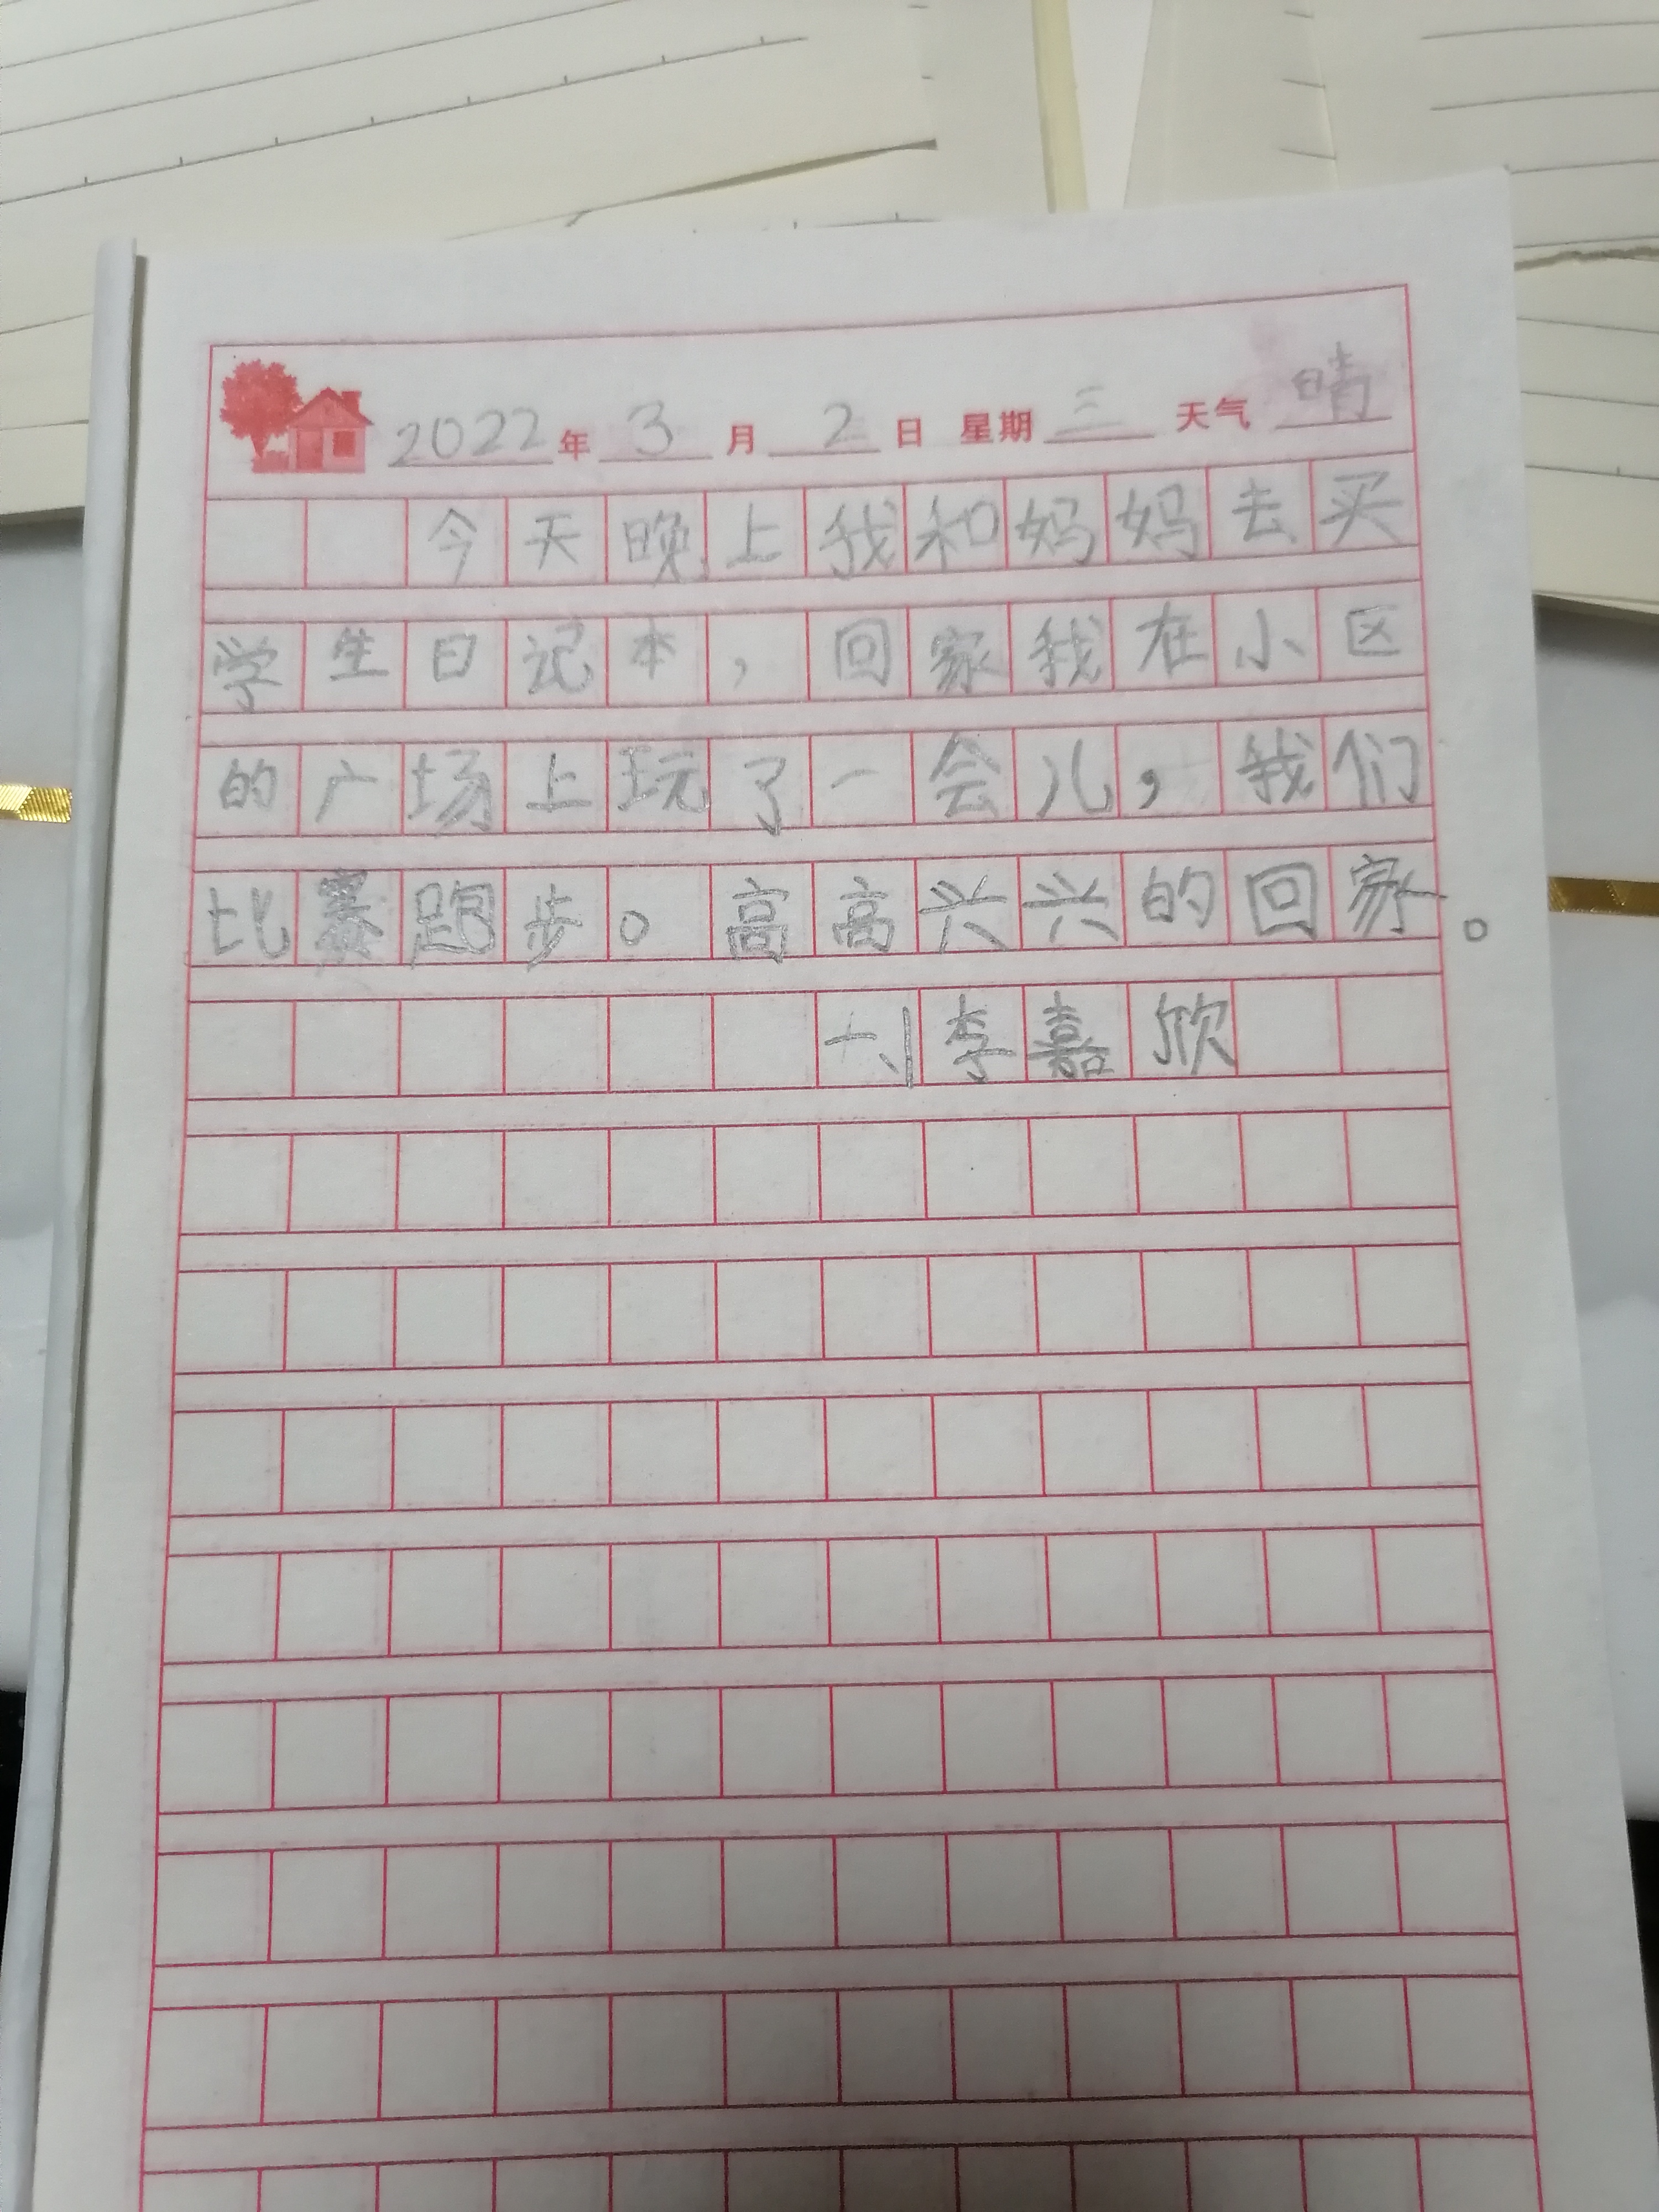 2022年 3 月 2 日 星期 三 天气 晴
今天晚上我和妈妈去买
学生日记本，回家我在小区
的广场上玩了一会儿，我们
比赛跑步。高高兴兴的回家。
一、1李嘉欣